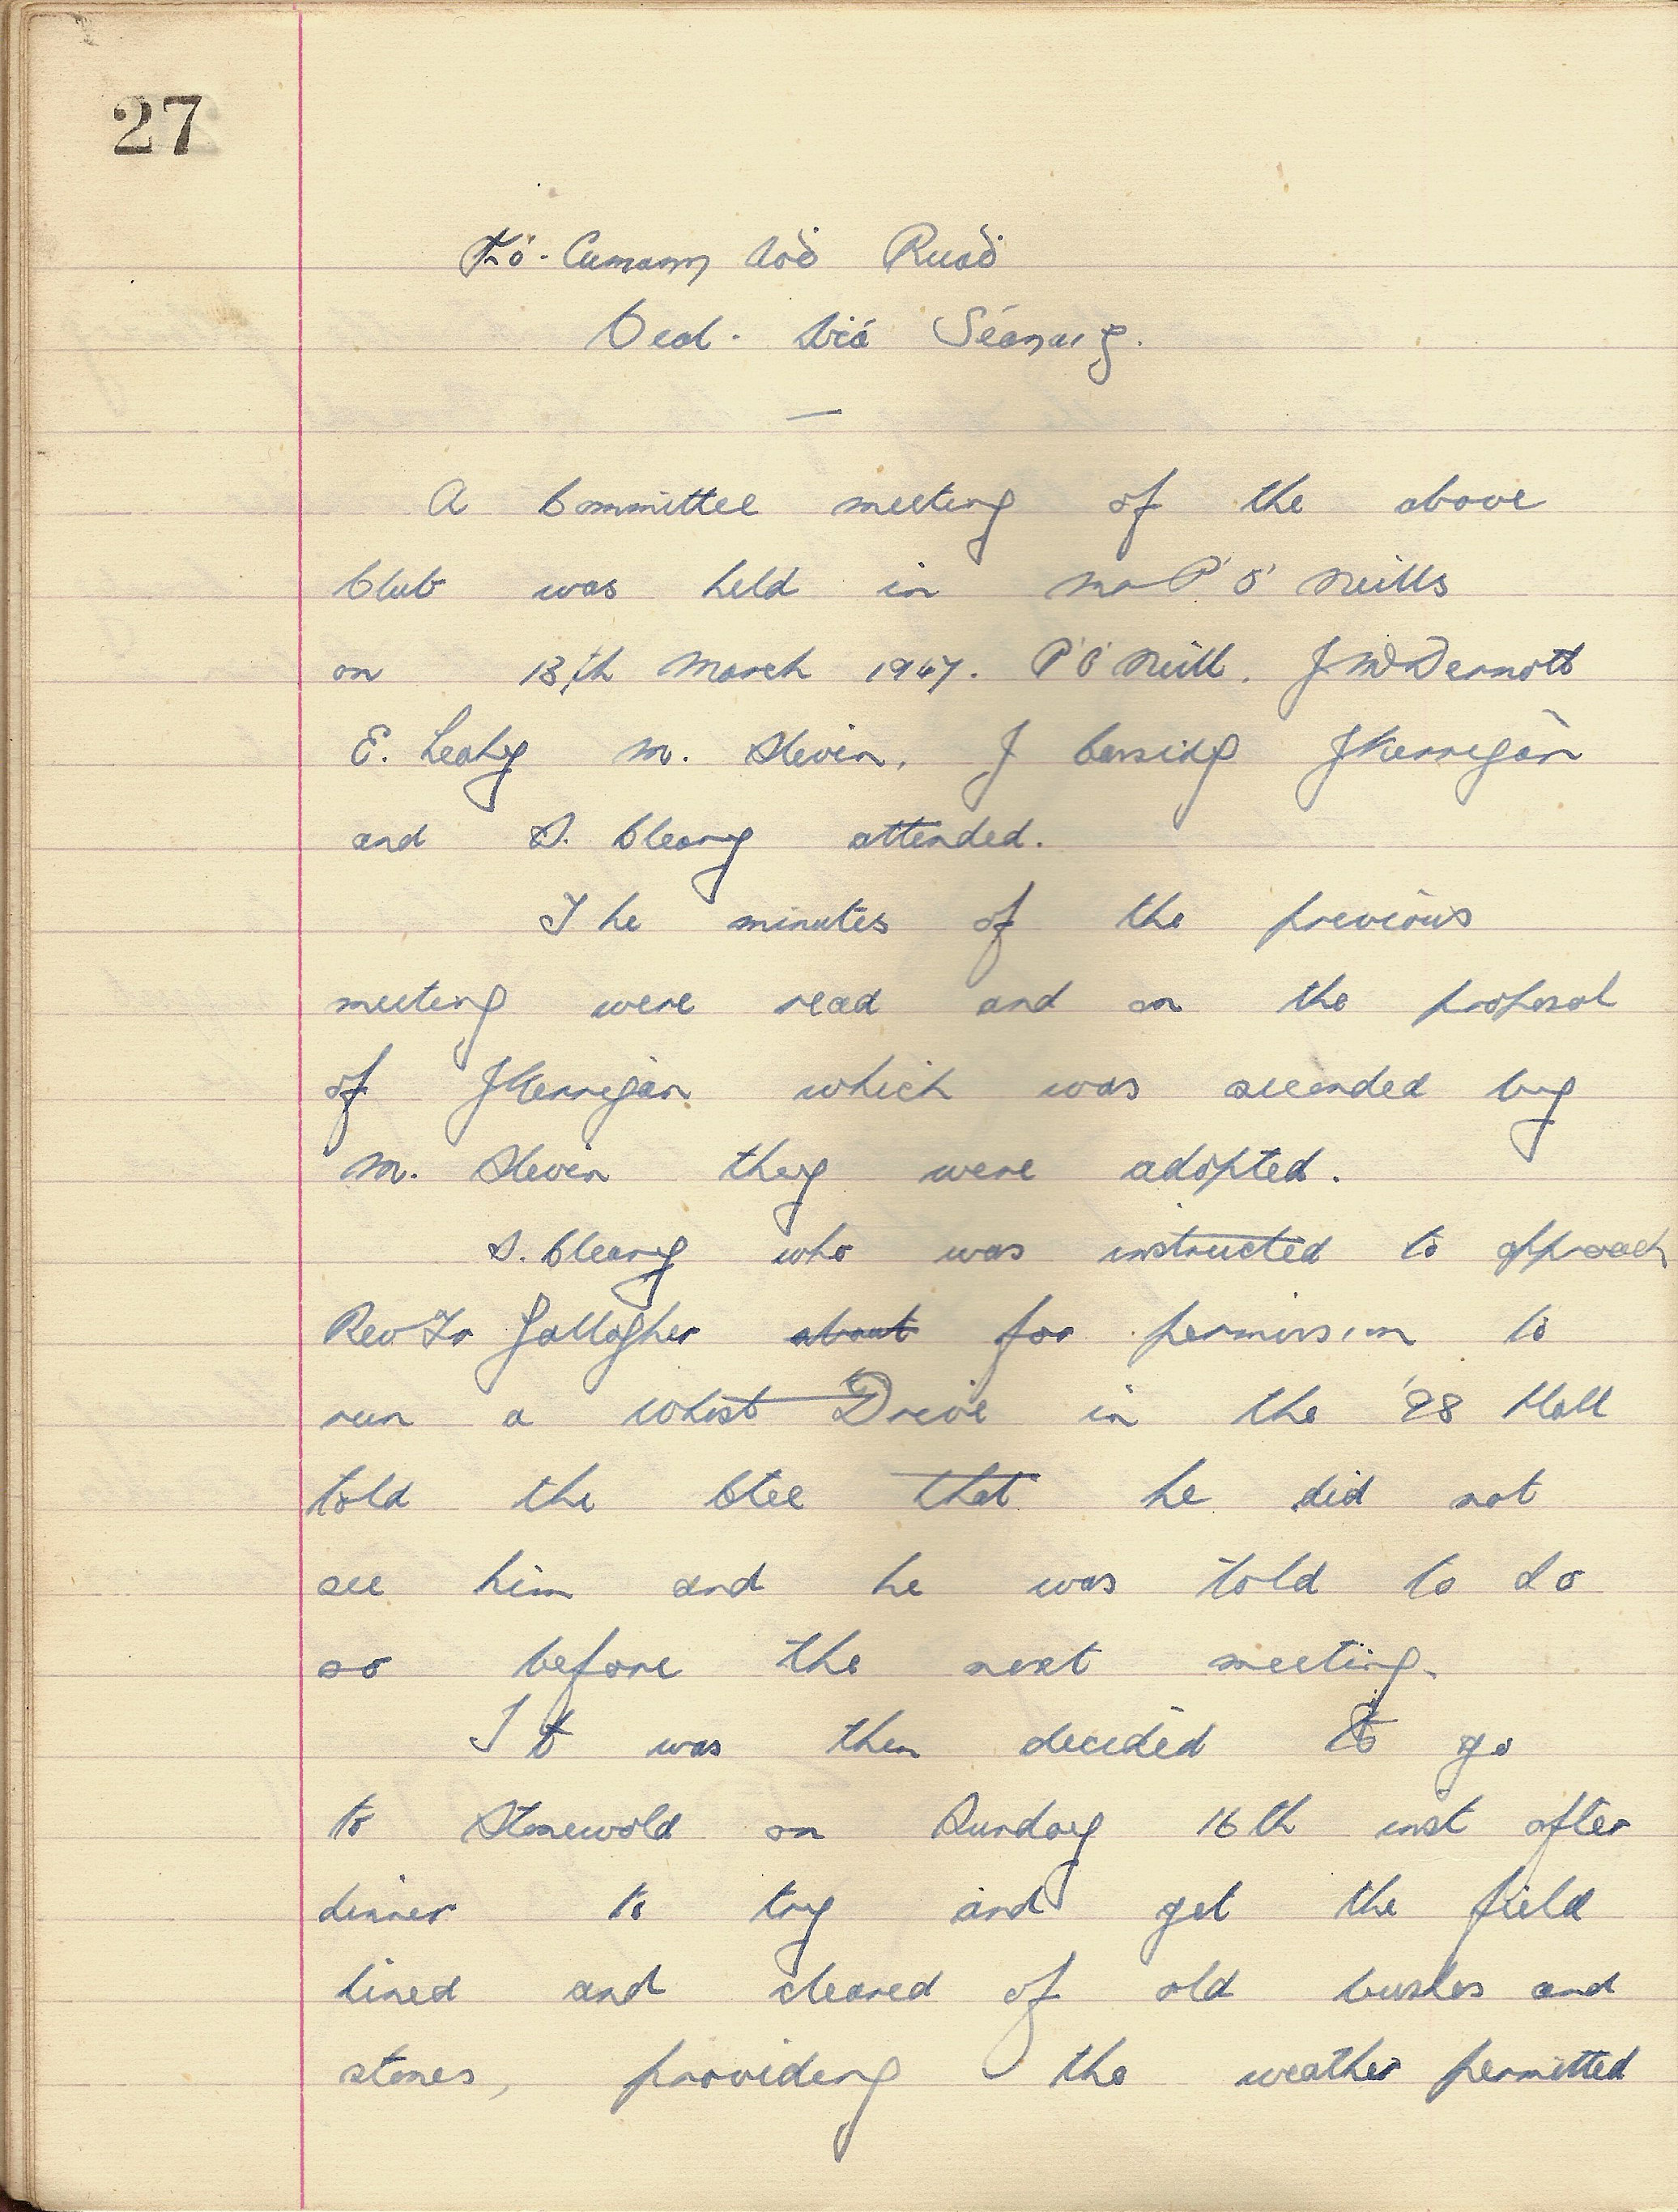 27
Fó-Cumann Aoḋ Ruaḋ
Beal. Áṫa Séanaiġ.
A Committee meeting of the above
Club was held in Mr P O' Neills
on 13th March 1947. P O' Neill. J McDermott
E. Leahy M. Slevin. J Cassidy J Kerrigan
and S. Cleary attended.
The minutes of the previous
meeting were read and on the proposal
of J Kerrigan which was seconded by
M. Slevin they were adopted.
S. Cleary who was instructed to approach
Rev Fr Gallagher about for permission to
run a Whist Drive in the '98 Hall
told the Ctee that he did not
see him and he was told to do
so before the next meeting.
It was then decided to go
to Stonewold on Sunday 16th inst after
dinner to try and get the field
lined and cleared of old bushes and
stones, providing the weather permitted